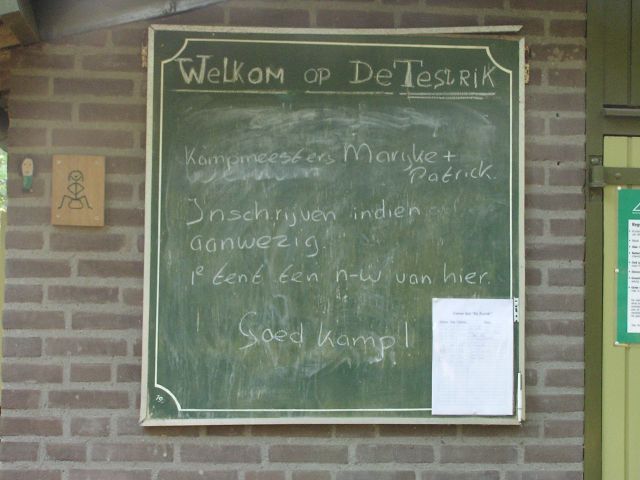 Welkom op De Teslrik
Kampmeesters Marijke +
Patrick.
Inschrijven indien
aanwezig.
1e tent ten n-w van hier.
Goed Kamp!